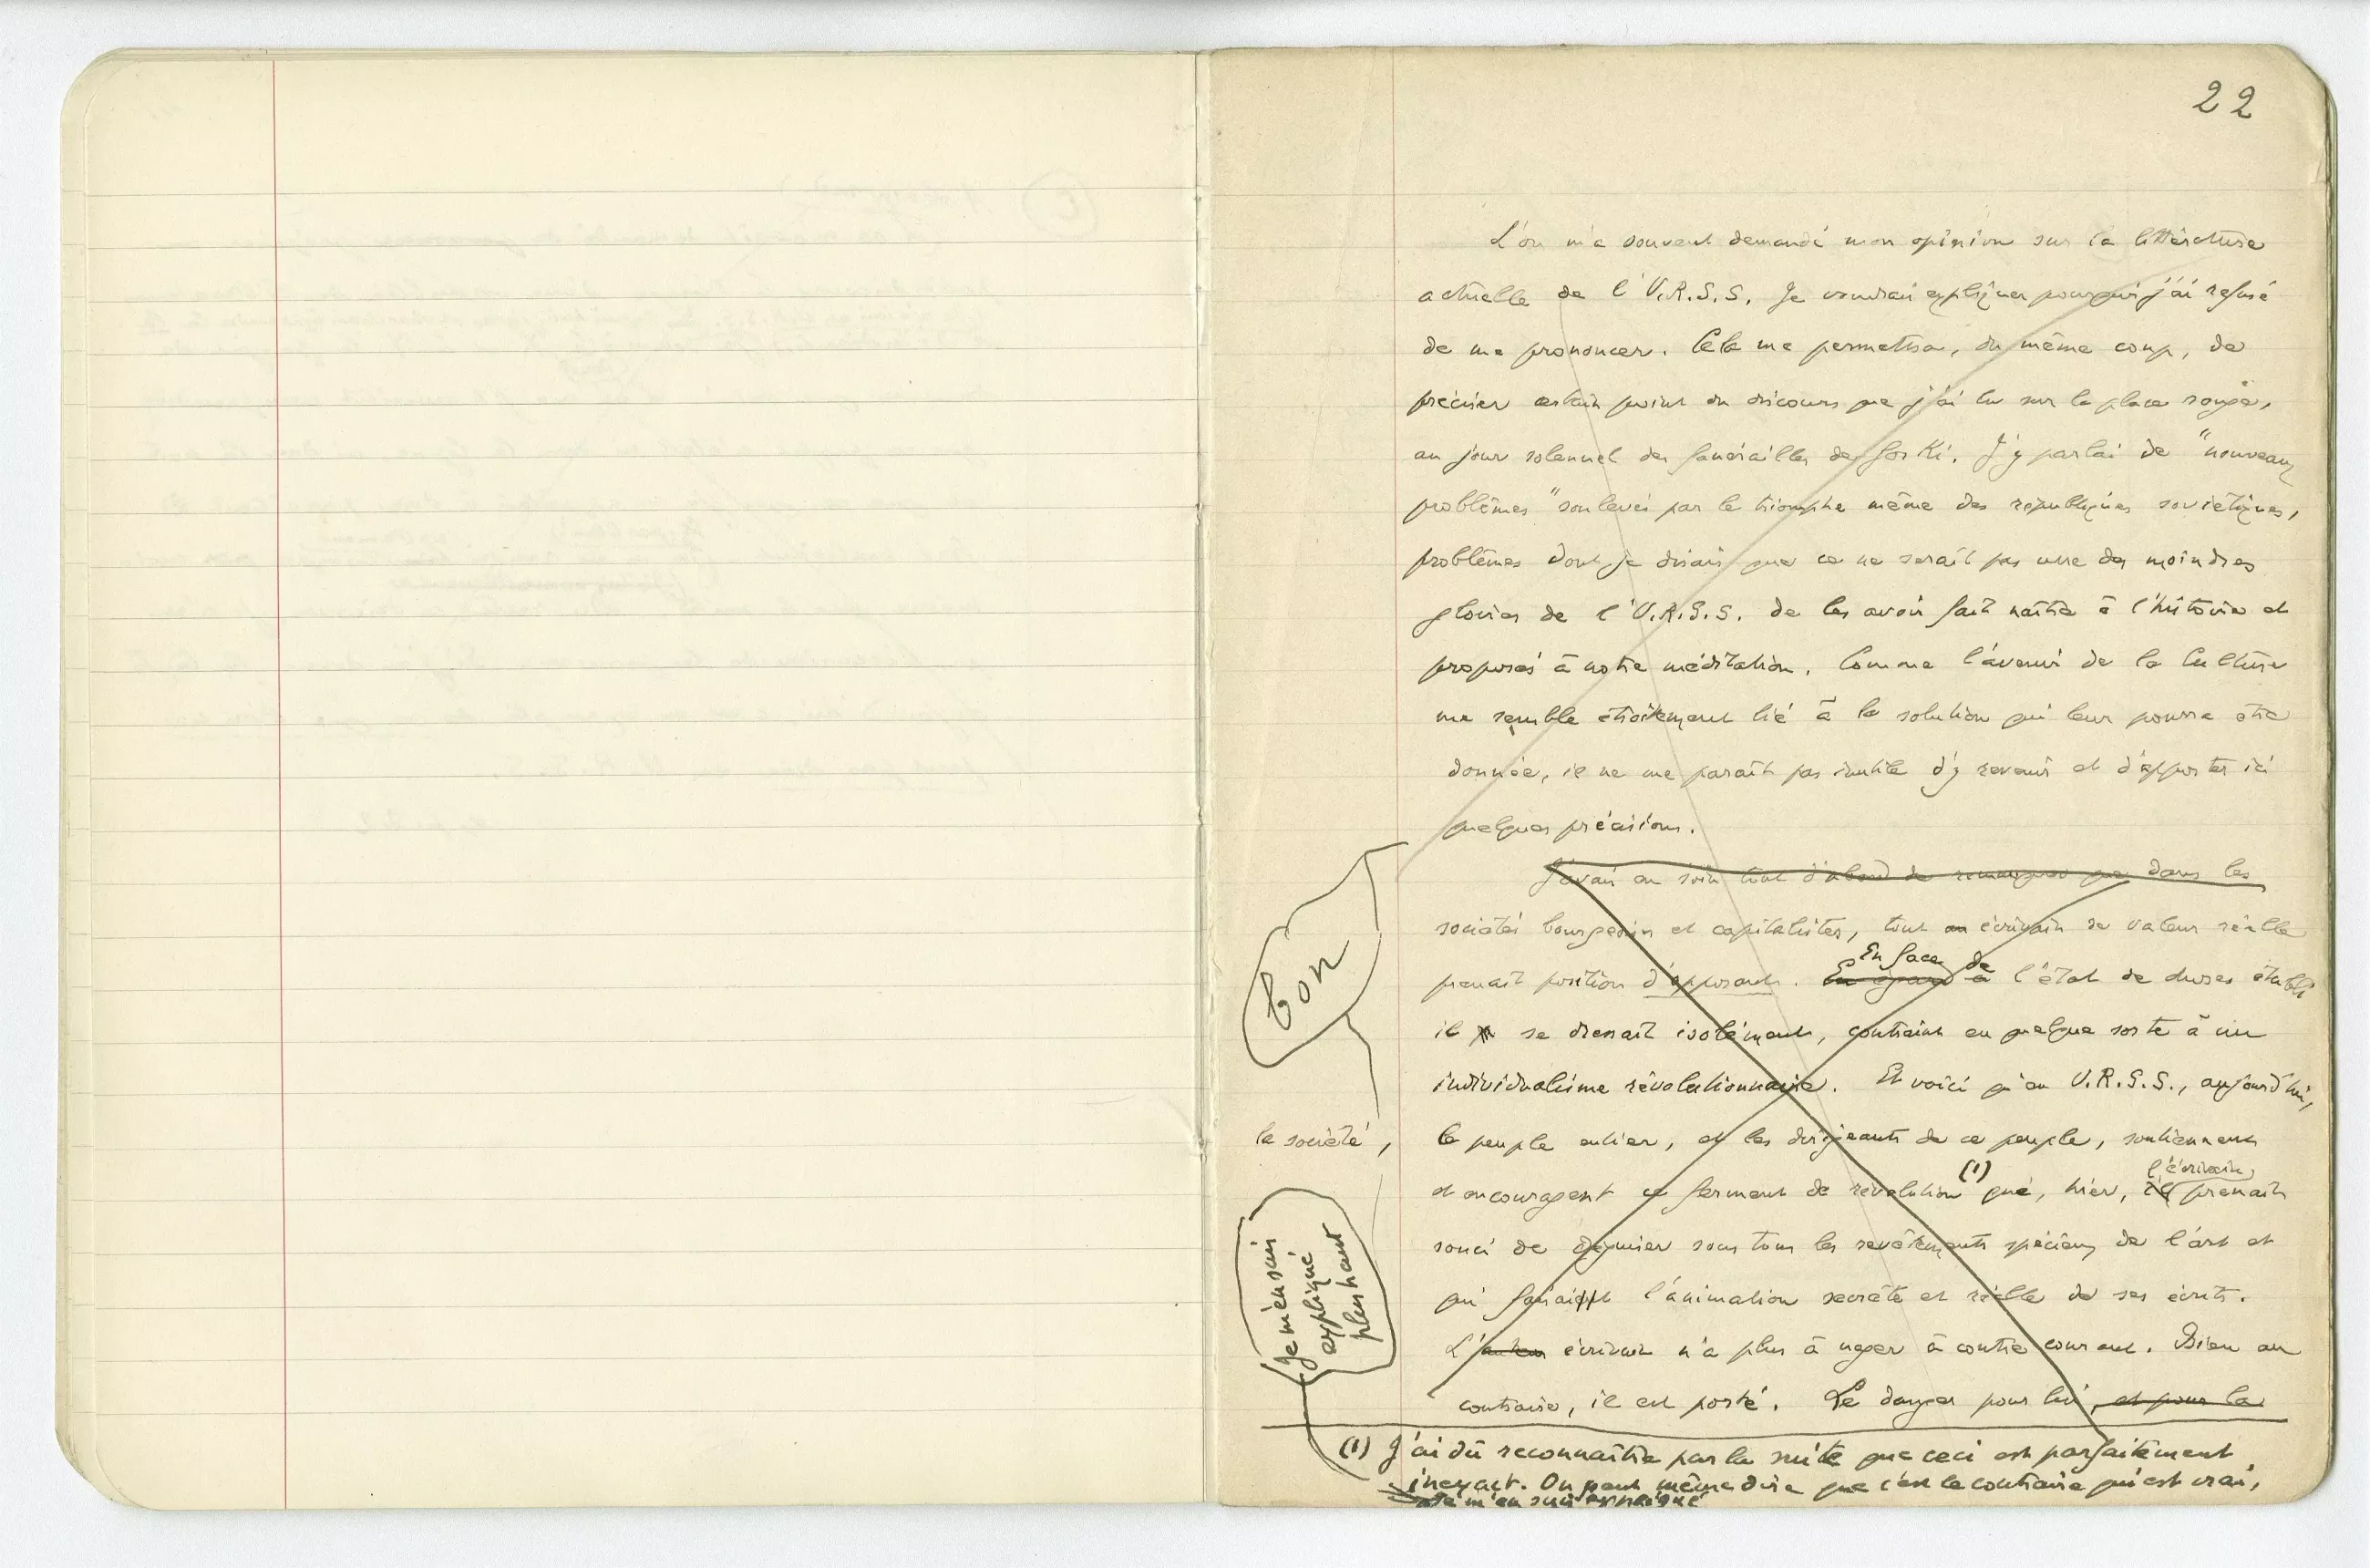 22
L'on m'a souvent demandé mon opinion sur la littérature
actuelle de l'U.R.S.S. Je voudrais expliquer pourquoi j'ai refusé
de me prononcer. Cela me permettra, du même coup, de
préciser certain point du discours que j'ai lu sur la place rouge,
au jour solennel des funérailles de Gorki. J'y parlai de "nouveaux
problèmes" soulevés par le triomphe même des républiques soviétiques,
problèmes dont je disais que ce ne serait pas une des moindres
gloires de l'U.R.S.S. de les avoir fait naître à l'histoire et
proposés à notre méditation. Comme l'avenir de la Culture
me semble étroitement lié à la solution qui leur pourra être
donnée, il ne me paraît pas inutile d'y revenir et d'apporter ici
quelques précisions.
J'avais eu soin tout d'abord de remarquer que dans les
sociétés bourgeoises et capitalistes, tout écrivain de valeur réelle
prenait position d'opposant. En égard à l'état de choses établi
En face de
il se dressait isolément, contraint en quelque sorte à un
individualisme révolutionnaire. Et voici qu'en U.R.S.S., aujourd'hui,
la société, le peuple entier, et les dirigeants de ce peuple, soutiennent
et encouragent ce ferment de révolution (1) que, hier, il prenait
l'écrivain
souci de déguiser sous tous les revêtements spécieux de l'art et
qui faisait l'animation secrète et réelle de ses écrits.
L'auteur écrivain n'a plus à nager à contre courant. Bien au
contraire, il est porté. Le danger pour lui, et pour la
(1) J'ai dû reconnaître par la suite que ceci est parfaitement
inexact. On peut même dire que c'est le contraire qui est vrai,
Je m'en suis expliqué
bon
Je m'en suis
expliqué
plus haut